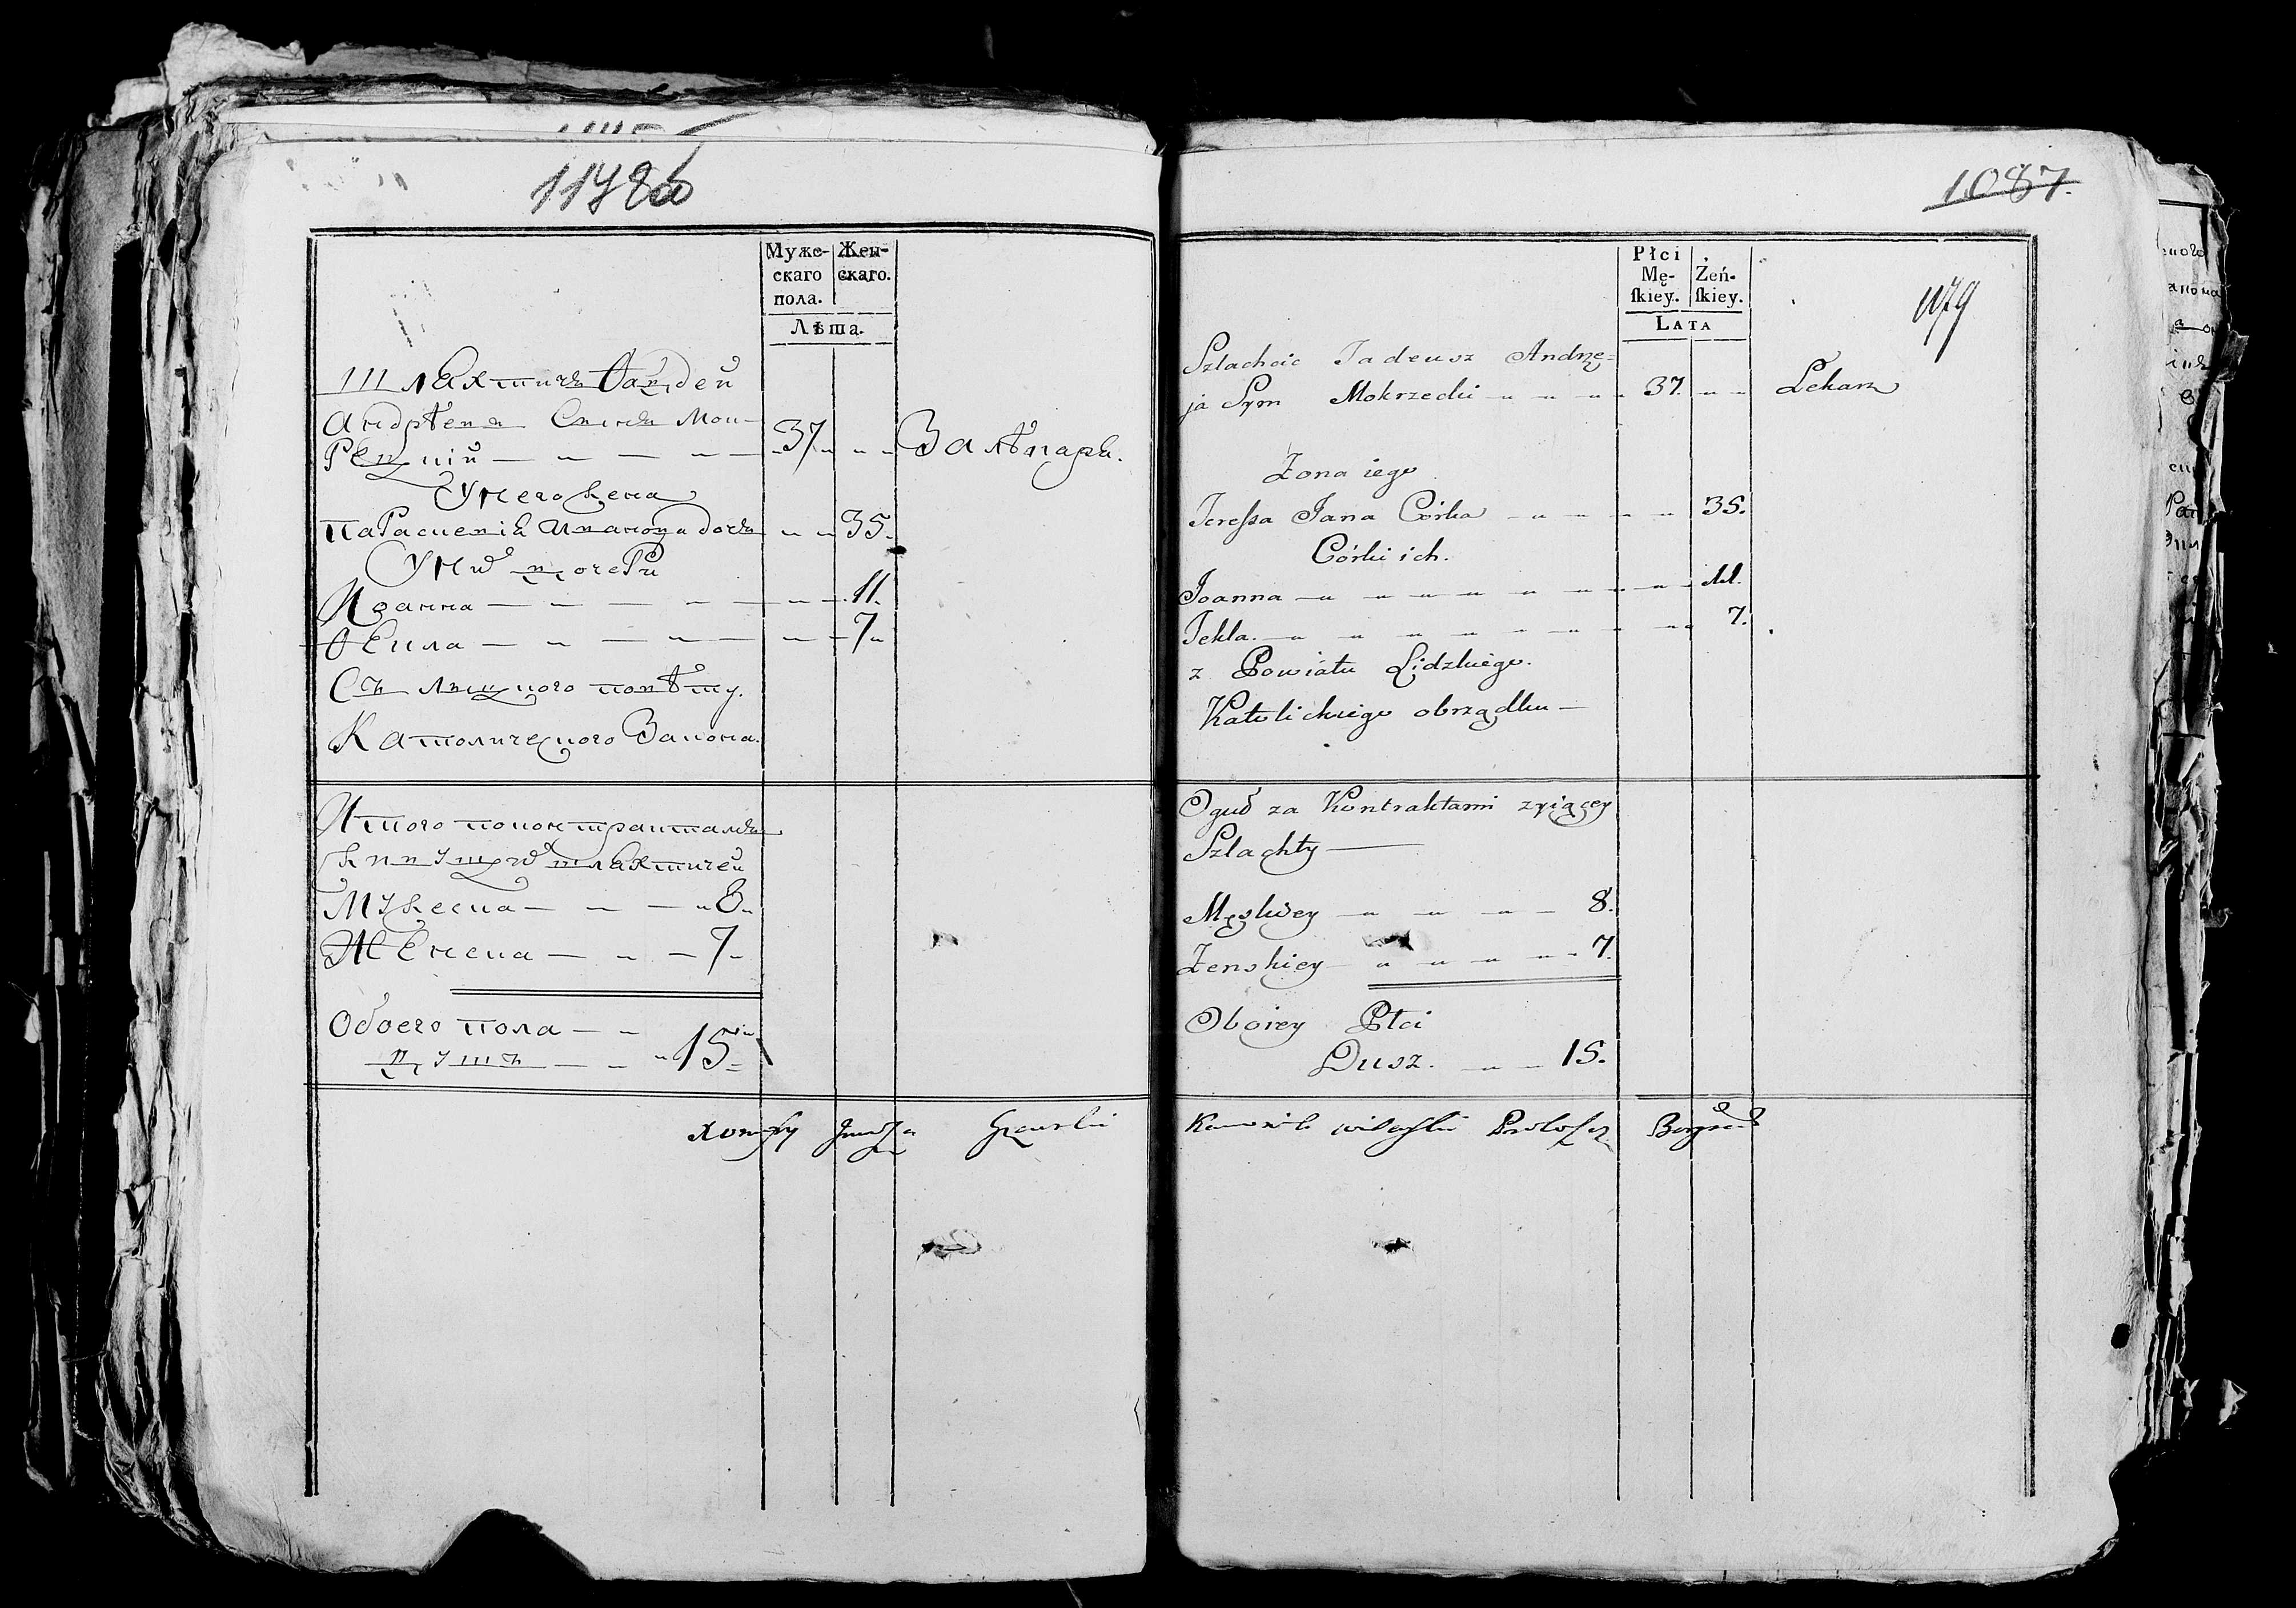 Муже-
скаго
пола.
Жен-
скаго.
Лѣта.
Шляхтичъ Фаддей
Андрѣевъ Сынъ Мок-
рецкій
37
За лѣкаря.
У него Жена
Ивановна дочь
35.
У них дочери
Иоанна
11.
Фекла
7
Съ Лидского повѣту.
Католического Закона.
Итого по контрактамъ
живущих шляхтичей
Мужеска
8
Женска
7
Обоего пола
душъ
15
1087.
1179
Płci
Mę-
ſkiey.
Żeń-
ſkiey.
Lata
Szlachcic Tadeusz Andrze=
ja Syn Mokrzecki
37.
Lekarz
Żona iego
Teressa Jana Córka
35.
Córki ich.
Joanna
11.
Tekla.
7.
z Powiatu Lidzkiego.
Katolickiego obrządku
Oguł za Kontraktami zyiącey
Szlachty
Męskiey
8.
Zenskiey
7.
Oboiey Płci
Dusz.
15.